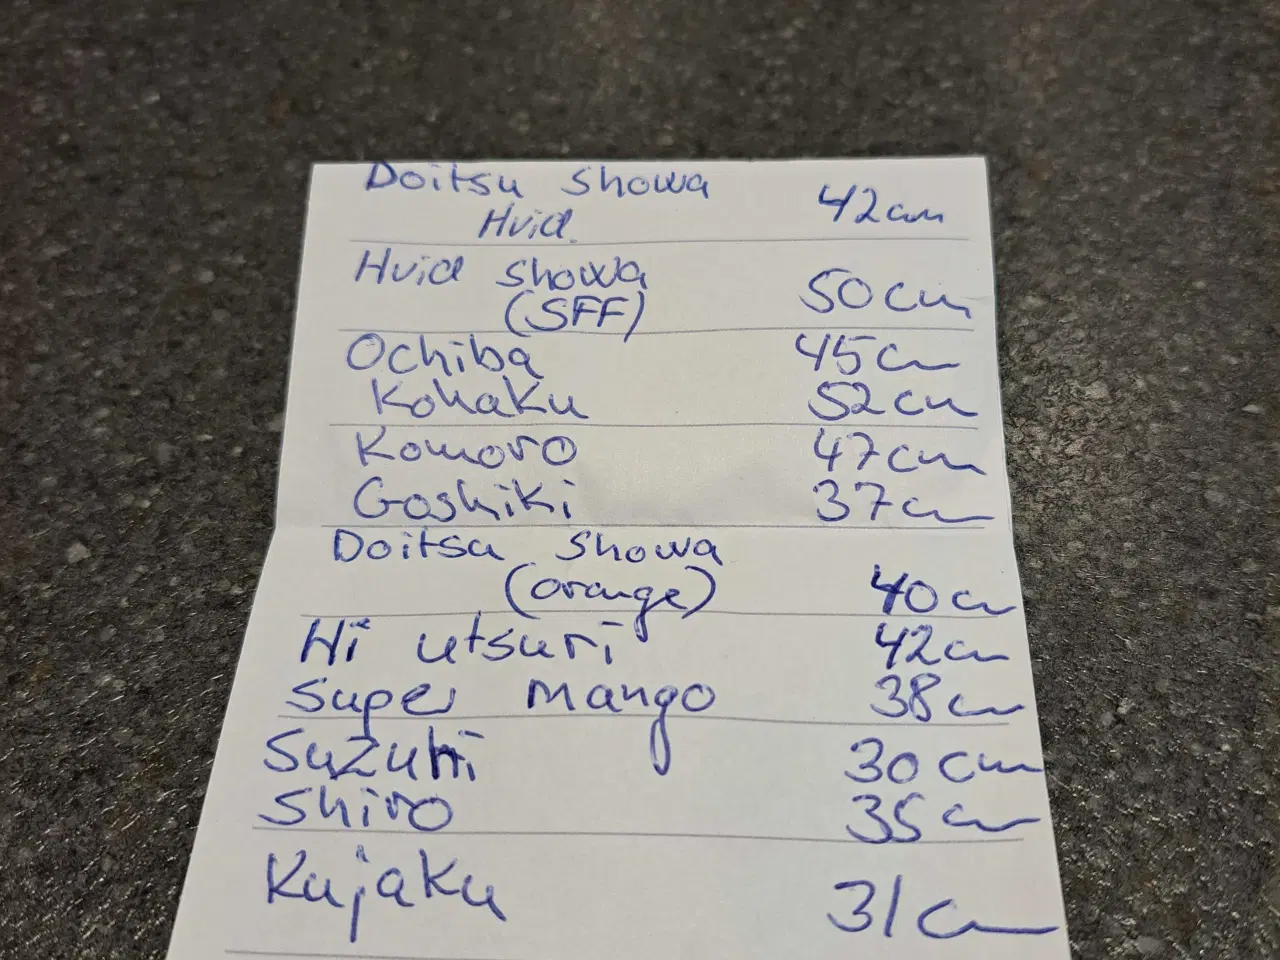 Doitsu Showa
Hvid. 42cm
Hvid Showa
(SFF) 50cm
Ochiba 45cm
Kohaku 52cm
Komoro 47cm
Goshiki 37cm
Doitsu Showa
(orange) 40cm
Hi utsuri 42cm
Super Mango 38cm
Suzuki 30cm
Shiro 35cm
Kujaku 31cm